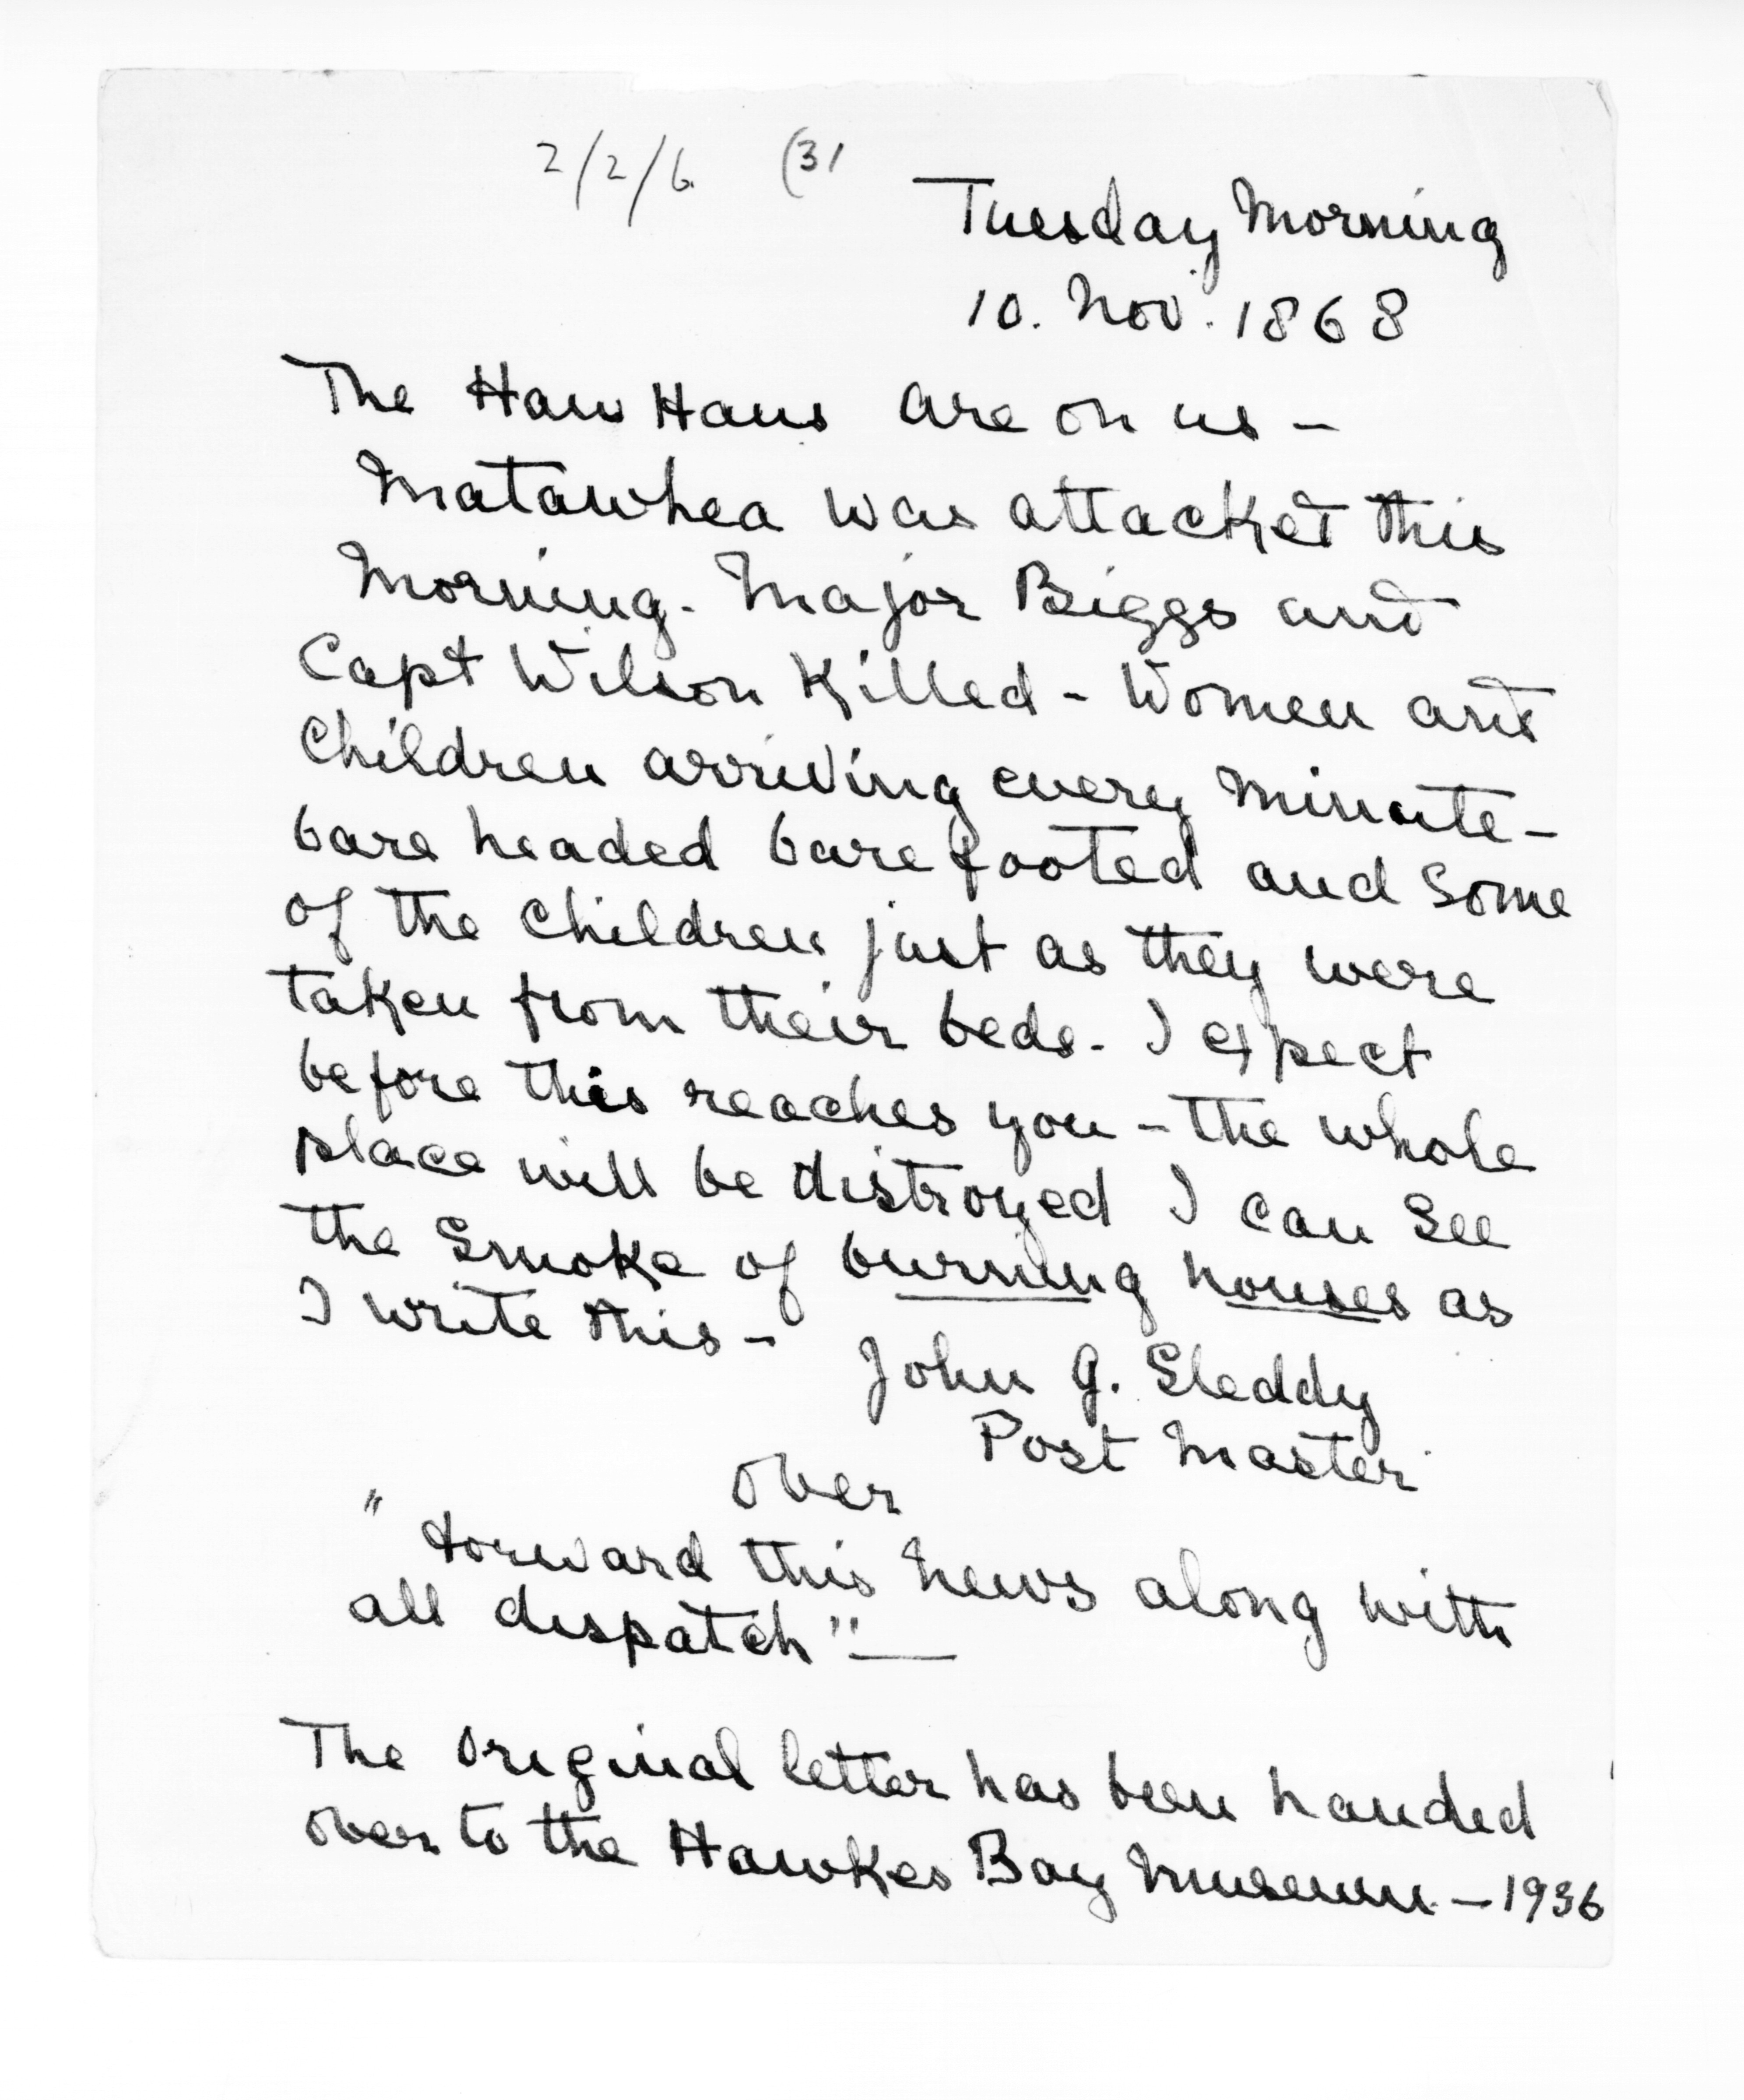 2/2/6 (31
Tuesday Morning
10. Nov. 1868
The Haw Haws are on us –
Matawhea was attacked this
Morning. Major Biggs and
Capt Wilson Killed – Women and
Children arriving every minute –
bare headed bare footed and some
of the children just as they were
taken from their beds. I expect
before this reaches you – the whole
place will be distroyed I can see
the Smoke of burning houses as
I write this –
John G. Sleddy
Post Master
over
"Forward this news along with
all dispatch" —
The original letter has been handed
over to the Hawkes Bay Museum. – 1936